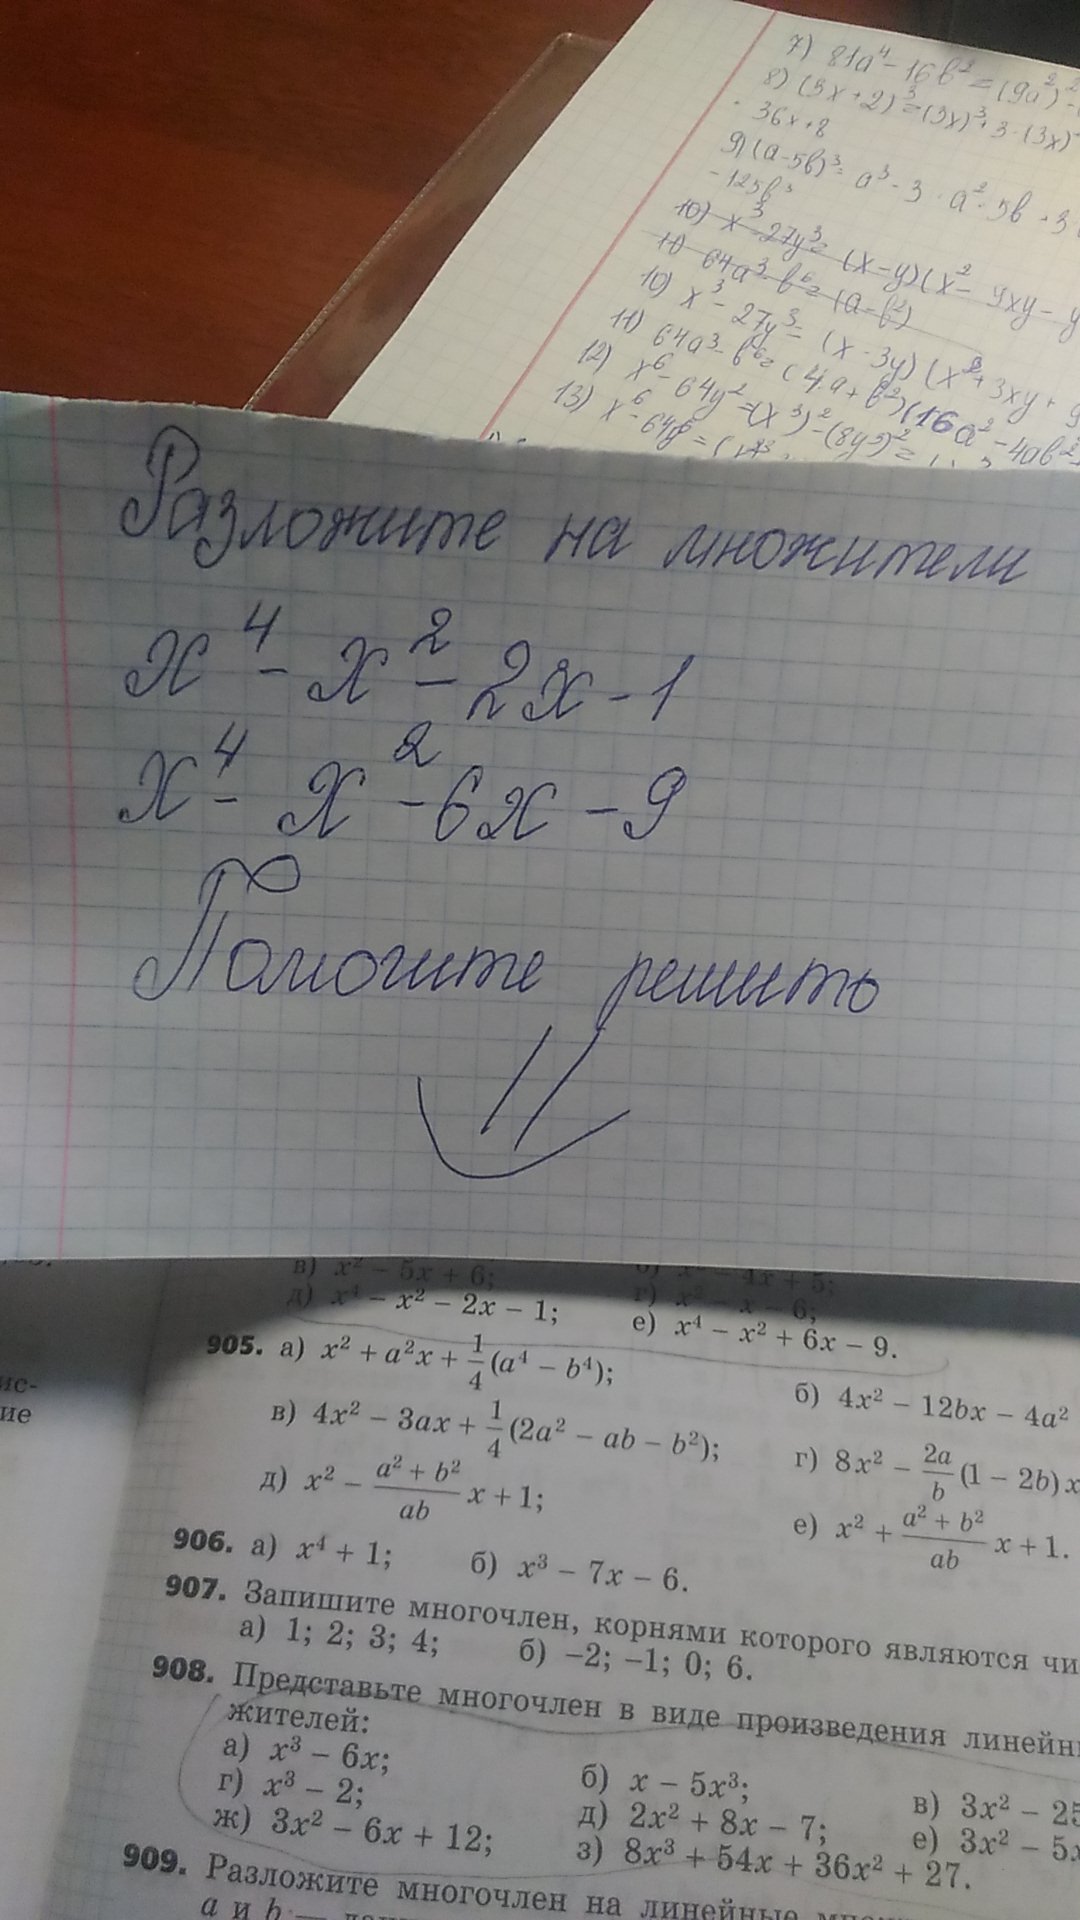 7) 81a⁴ - 16b² = (9a²)² - (
8) (3x + 2)³ = (3x)³ + 3 · (3x)
36x + 8
9) (a - 5b)³ = a³ - 3 · a² · 5b + 3
- 125b³
10) x³ - 27y³ = (x - y)(x² - 9xy - y
11) 64a³ - b⁶ = (a - b²)
10) x³ - 27y³ = (x - 3y)(x² + 3xy + 9
11) 64a³ - b⁶ = (4a + b²)(16a² - 4ab²
12) x⁶ - 64y² = (x³)² - (8y³)² =
13) x⁶ - 64y⁶ = (
Разложите на множители
x⁴ - x² - 2x - 1
x⁴ - x² - 6x - 9
Помогите решить
в) x² - 5x + 6; б) x² - 4x + 5;
д) x⁴ - x² - 2x - 1; г) x² - x - 6;
е) x⁴ - x² + 6x - 9.
905. а) x² + a²x + 1/4 (a⁴ - b⁴); б) 4x² - 12bx - 4a²
в) 4x² - 3ax + 1/4 (2a² - ab - b²); г) 8x² - 2a/b (1 - 2b)x
д) x² - (a² + b²)/ab x + 1; е) x² + (a² + b²)/ab x + 1.
906. а) x⁴ + 1; б) x³ - 7x - 6.
907. Запишите многочлен, корнями которого являются чи
а) 1; 2; 3; 4; б) -2; -1; 0; 6.
908. Представьте многочлен в виде произведения линейн
жителей:
а) x³ - 6x; б) x - 5x³; в) 3x² - 25
г) x³ - 2; д) 2x² + 8x - 7; е) 3x² - 5x
ж) 3x² - 6x + 12; з) 8x³ + 54x + 36x² + 27.
909. Разложите многочлен на линейные
a и b —
ис-
ие